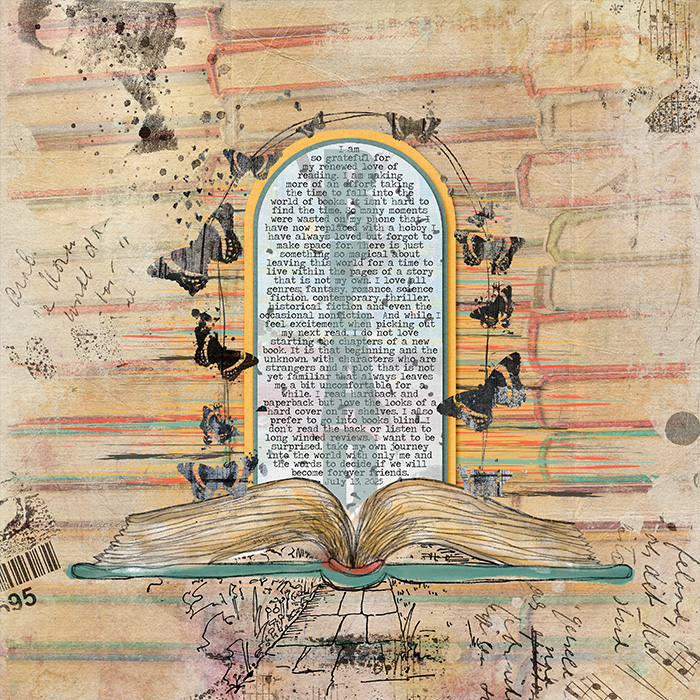 I am
so grateful for
my renewed love of
reading. I am making
more of an effort taking
the time to fall into the
world of books. It isn't hard to
find the time. So many moments
were wasted on my phone that I
have now replaced with a hobby I
have always loved but forgot to
make space for. There is just
something so magical about
leaving this world for a time to
live within the pages of a story
that is not my own. I love all
genres; fantasy, romance, science
fiction, contemporary, thriller,
historical fiction and even the
occasional nonfiction. And while I
feel excitement when picking out
my next read, I do not love
starting the chapters of a new
book. It is that beginning and the
unknown, with characters who are
strangers and a plot that is not
yet familiar that always leaves
me a bit uncomfortable for a
while. I read hardback and
paperback but love the looks of a
hard cover on my shelves. I also
prefer to go into books blind. I
don't read the back or listen to
long winded reviews. I want to be
surprised, take my own journey
into the world with only me and
the words to decide if we will
become forever friends.
July 13, 2025
595